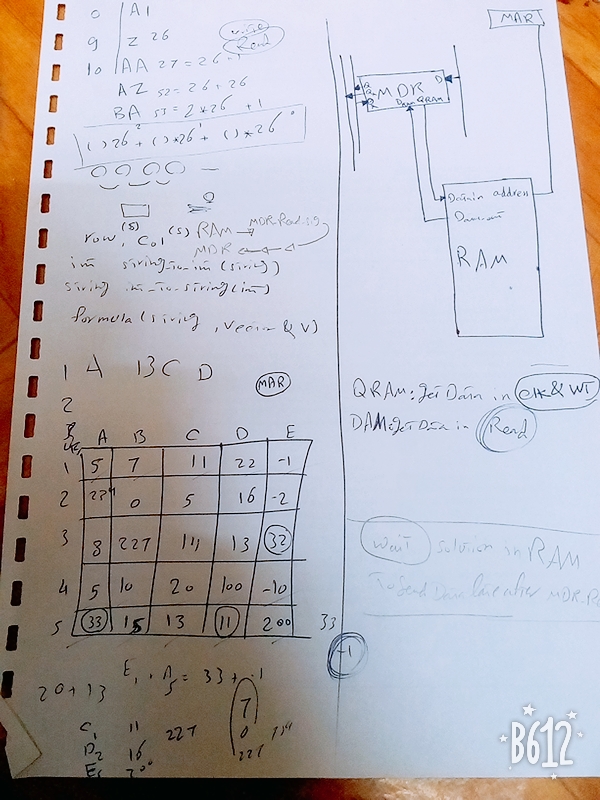 0 A1
9 Z 26
write
Read
10 AA 27 = 26 + 1
AZ 52 = 26 + 26
BA 53 = 2*26 + 1
( ) 26² + ( ) * 26¹ + ( ) * 26⁰
row, Col (s) (s) RAM → MDR.Read.sig
MDR
int string_to_int (string)
string int_to_string(int)
formula (string, vector & V)
1 A 13 C D
2
MAR
A B C D E
1 5 7 11 22 -1
2 0 5 16 -2
3 8 227 14 13 32
4 5 10 20 100 -10
5 33 15 13 11 200 33
-1
E1 + A5 = 33 + -1
20 + 13
7
C1 11 227 0
D2 16 227
E5 200
MAR
MDR
D
QRAM
Datain address
Dataout
RAM
QRAM: get Data in clk & WT
DAM: get Data in Read
wait solution in RAM
To send Data
B612